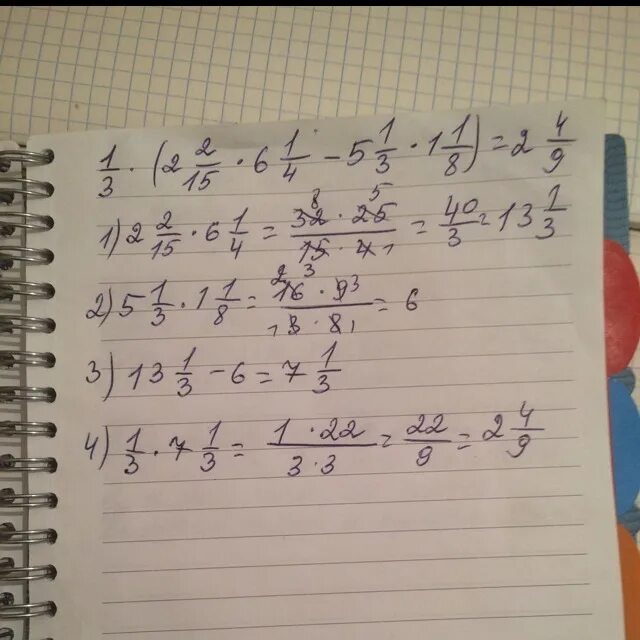 1/3 · (2 2/15 · 6 1/4 − 5 1/3 · 1 1/8) = 2 4/9
1) 2 2/15 · 6 1/4 = 32 8 · 25 5 / 15 · 4 1 = 40/3 = 13 1/3
2) 5 1/3 · 1 1/8 = 2 16 3 · 9 3 / 1 3 · 8 1 = 6
3) 13 1/3 − 6 = 7 1/3
4) 1/3 · 7 1/3 = 1 · 22 / 3 · 3 = 22/9 = 2 4/9